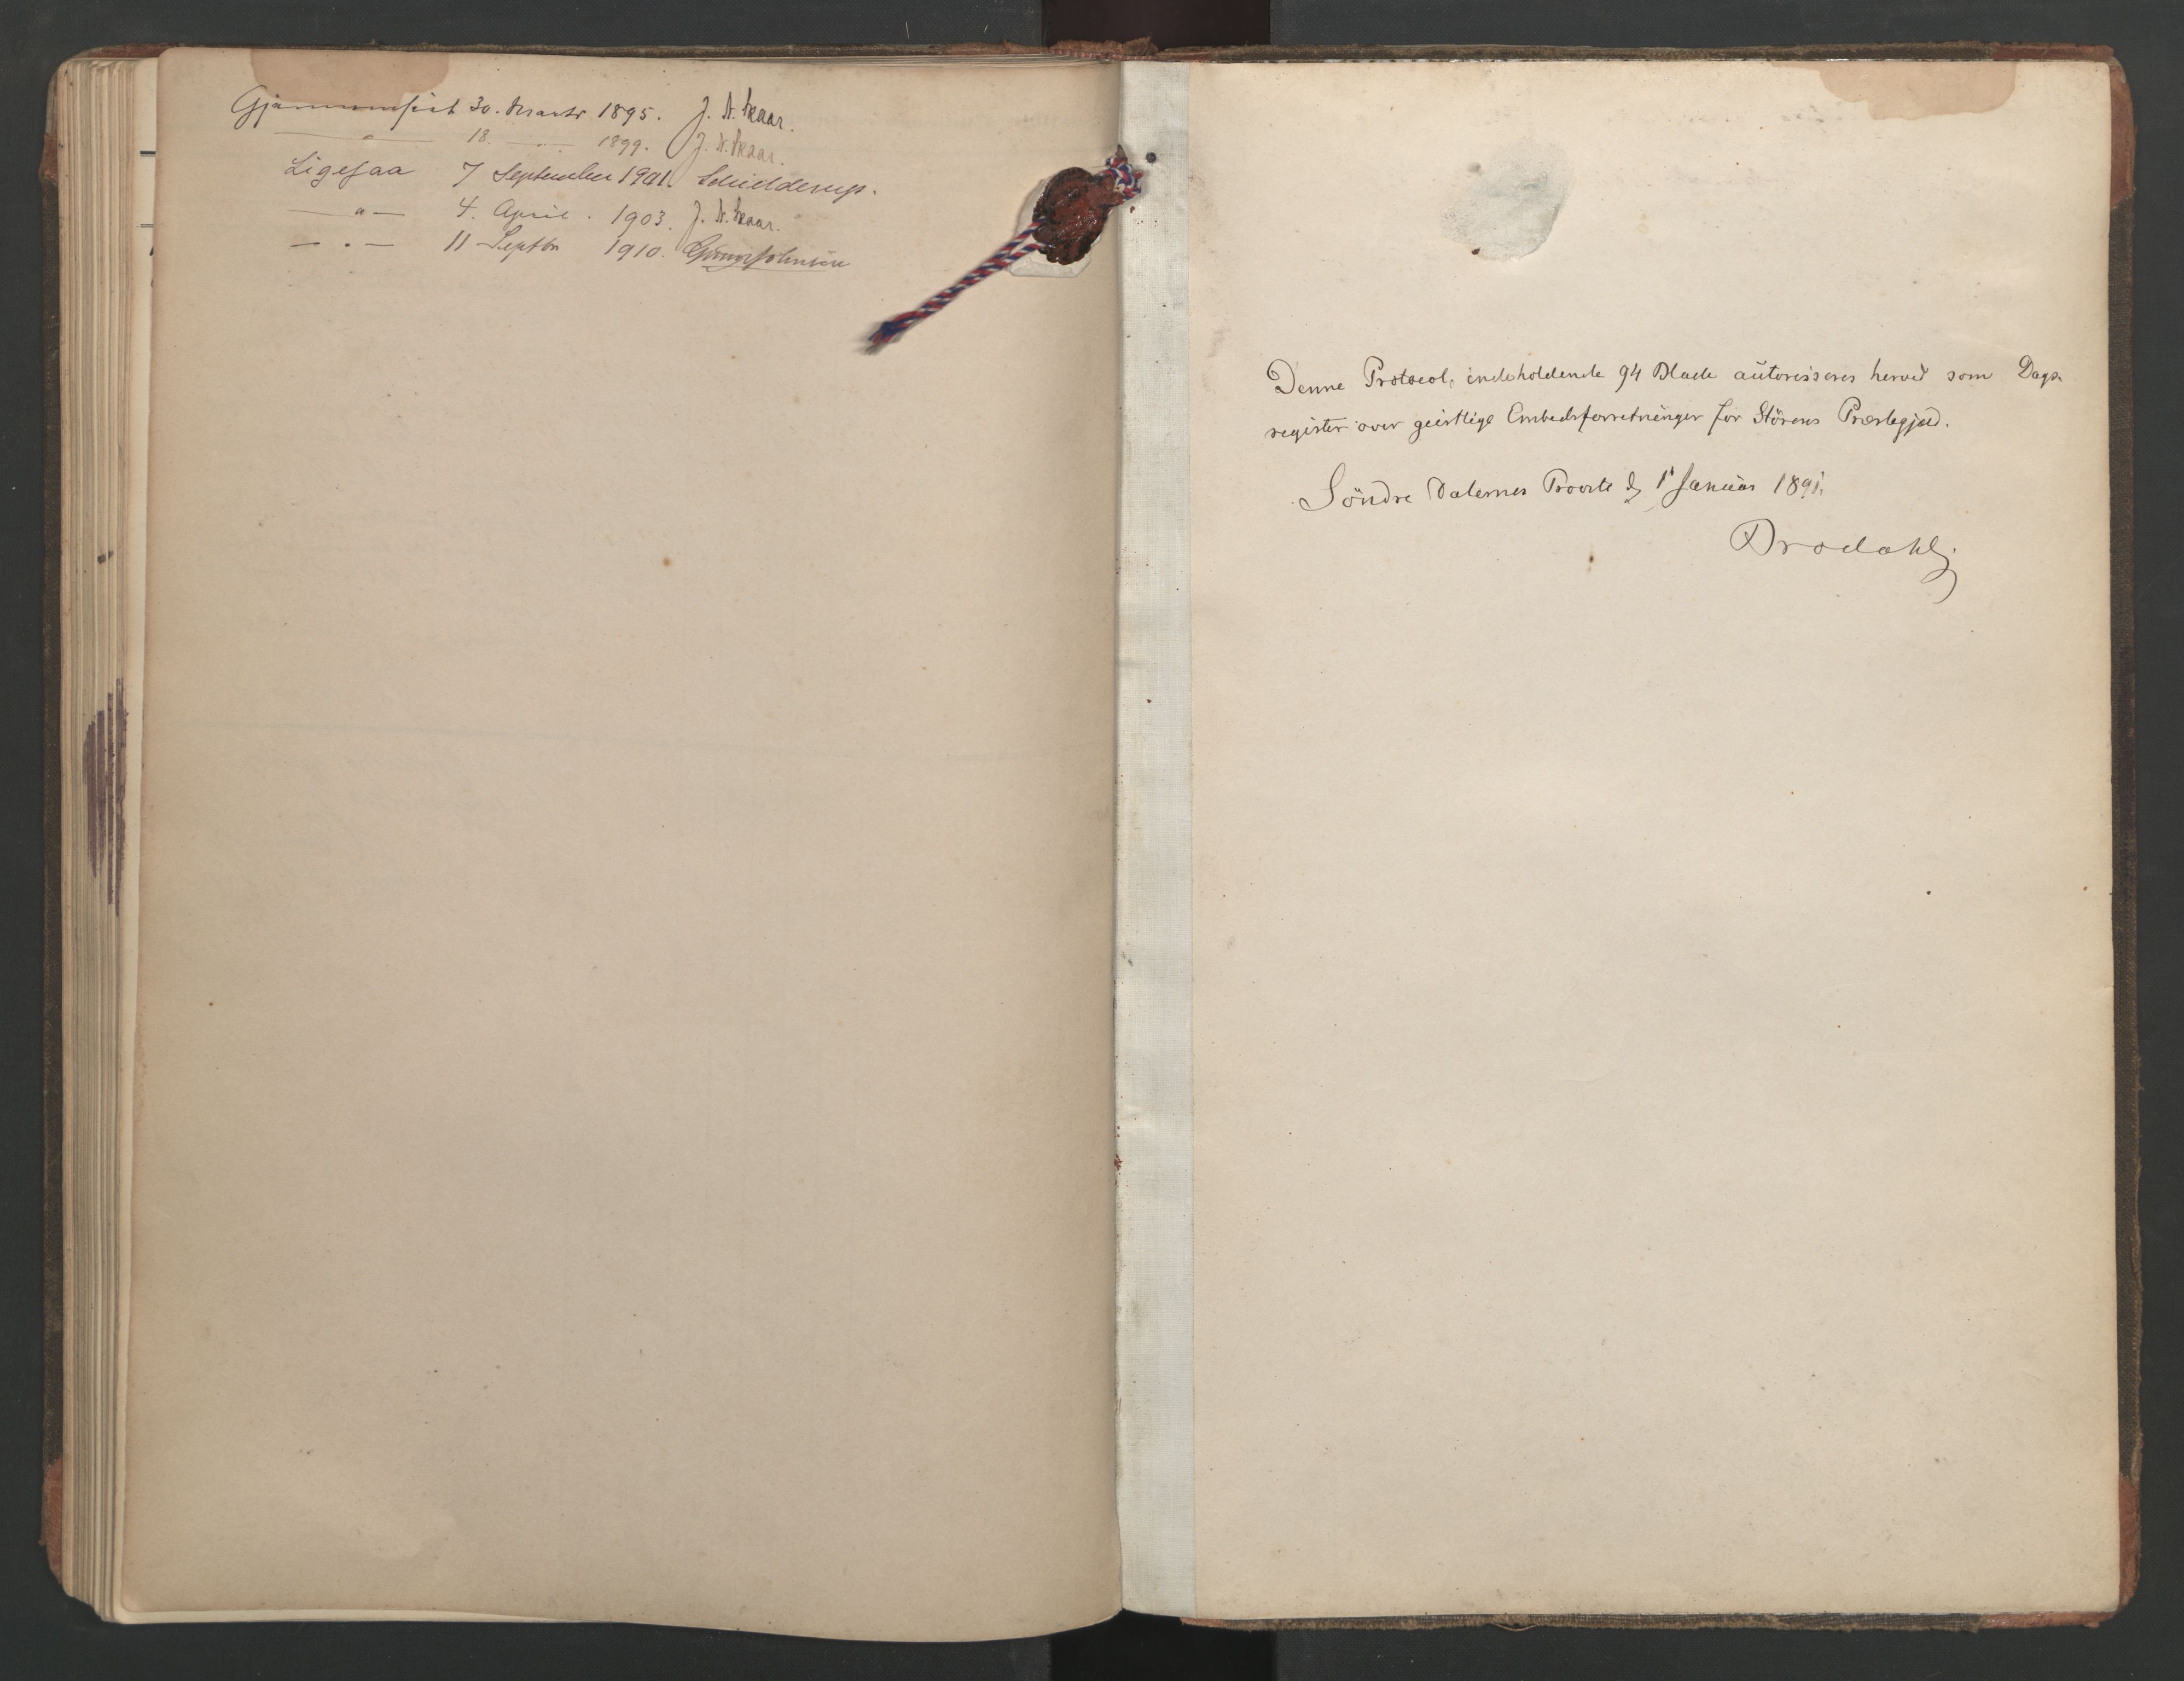 Gjennemseet 30. Marts 1895. J. N. Skaar.
— " — 18. — " — 1899. J. N. Skaar.
Ligesaa 7 September 1901. Schielderup.
— " — 4. April. 1903. J. N. Skaar.
— " — 11 Septbr 1910.
Denne Protocol, indeholdende 94 Blade autoriseres herved som Dags-
register over geistlige Embedsforretninger for Störens Præstegjeld.
Söndre Dalernes Provsti d. 1 Januar 1891.
Brodahl